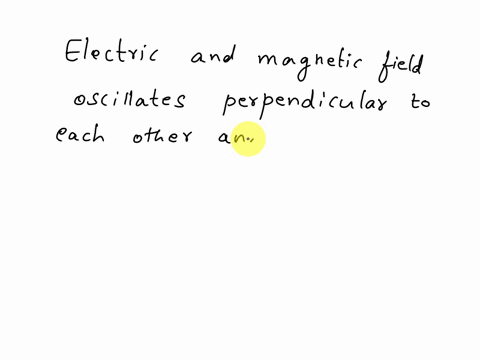 Electric and magnetic field
oscillates perpendicular to
each other an